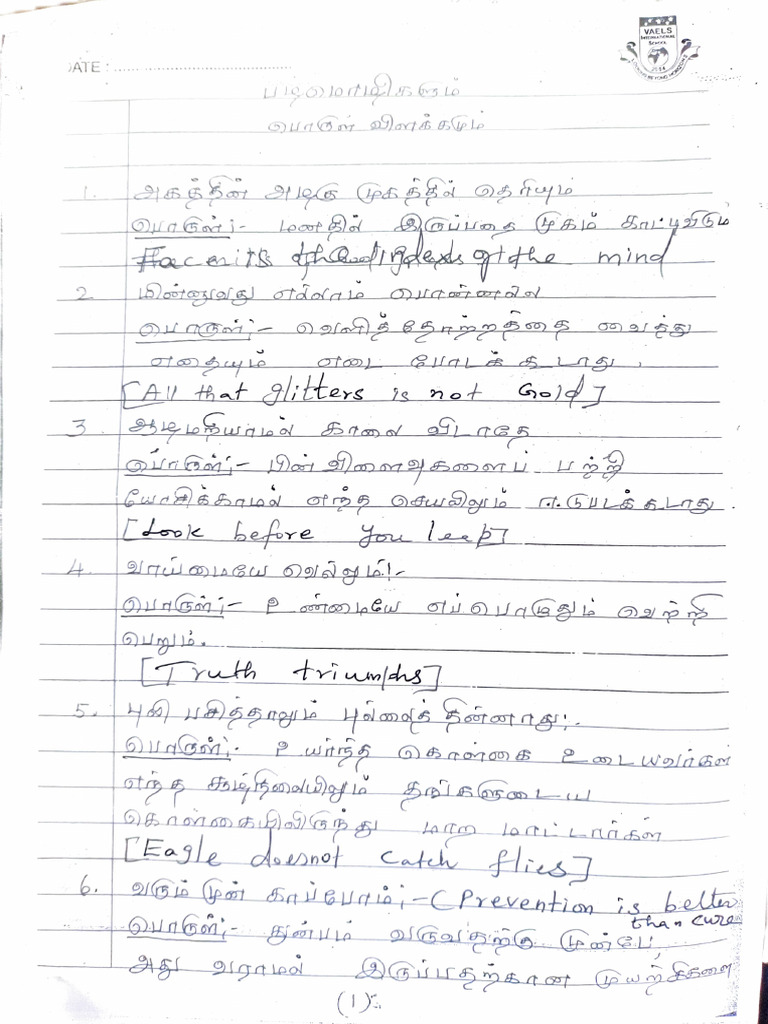 DATE : ..........................................
VAELS
INTERNATIONAL
SCHOOL
பழமொழிகளும்
பொருள் விளக்கமும்
1. அகத்தின் அழகு முகத்தில் தெரியும்
பொருள்:- மனதில் இருப்பதை முகம் காட்டிவிடும்
Face is the index of the mind
2 மின்னுவது எல்லாம் பொன்னல்ல
பொருள்:- வெளித்தோற்றத்தை வைத்து
எதையும் எடை போடக் கூடாது.
[All that glitters is not Gold]
3 ஆழமறியாமல் காலை விடாதே
பொருள்:- பின் விளைவுகளைப் பற்றி
யோசிக்காமல் எந்த செயலிலும் ஈடுபடக்கூடாது.
[Look before you leep]
4. வாய்மையே வெல்லும்!-
பொருள்:- உண்மையே எப்பொழுதும் வெற்றி
பெறும்.
[Truth triumphs]
5. புலி பசித்தாலும் புல்லைத் தின்னாது:.
பொருள்:- உயர்ந்த கொள்கை உடையவர்கள்
எந்த சூழ்நிலையிலும் தங்களுடைய
கொள்கையிலிருந்து மாற மாட்டார்கள்
[Eagle doesnot catch flies]
6. வரும் முன் காப்போம்:-(Prevention is better
than cure
பொருள்:- துன்பம் வருவதற்கு முன்பே,
அது வராமல் இருப்பதற்கான முயற்சிகளை
(1):